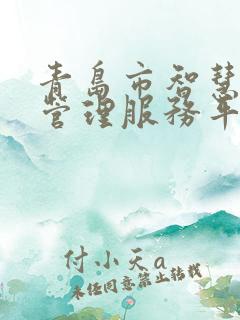 青岛市智慧
管理服务平
付小天a
未经同意禁止转载